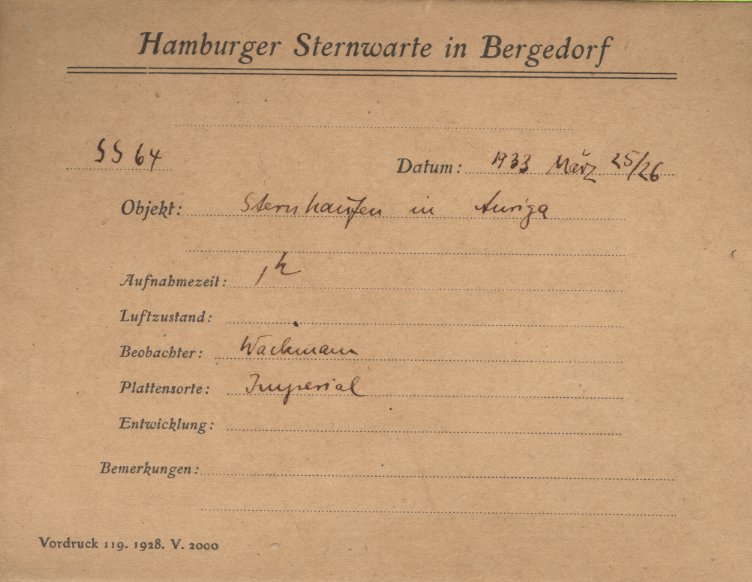 Hamburger Sternwarte in Bergedorf
SS 64 Datum: 1933 März 25/26
Objekt: Sternhaufen in Auriga
Aufnahmezeit: 1h
Luftzustand:
Beobachter: Wachmann
Plattensorte: Imperial
Entwicklung:
Bemerkungen:
Vordruck 119. 1928. V. 2000